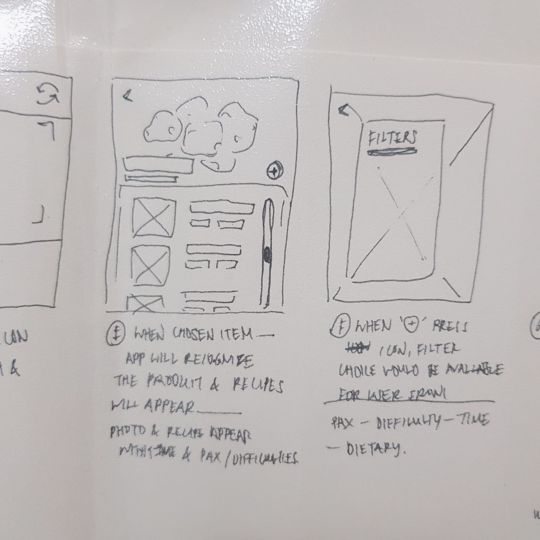 FILTERS
CON
&
E WHEN CHOSEN ITEM —
APP WILL RECOGNIZE
THE PRODUCT & RECIPES
WILL APPEAR
PHOTO & RECIPE APPEAR
WITH TIME & PAX/DIFFICULTIES
F WHEN '+' PRESS
ICON, FILTER
CHOICE WOULD BE AVAILABLE
FOR USER FROM
PAX — DIFFICULTY — TIME
— DIETARY.